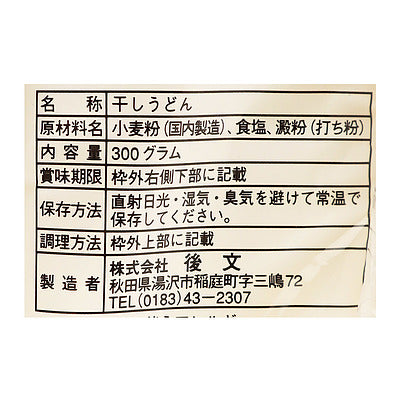 名称 干しうどん
原材料名 小麦粉(国内製造)、食塩、澱粉(打ち粉)
内容量 300グラム
賞味期限 枠外右側下部に記載
保存方法 直射日光・湿気・臭気を避けて常温で
保存してください。
調理方法 枠外上部に記載
製造者 株式会社 後文
秋田県湯沢市稲庭町字三嶋72
TEL(0183)43-2307